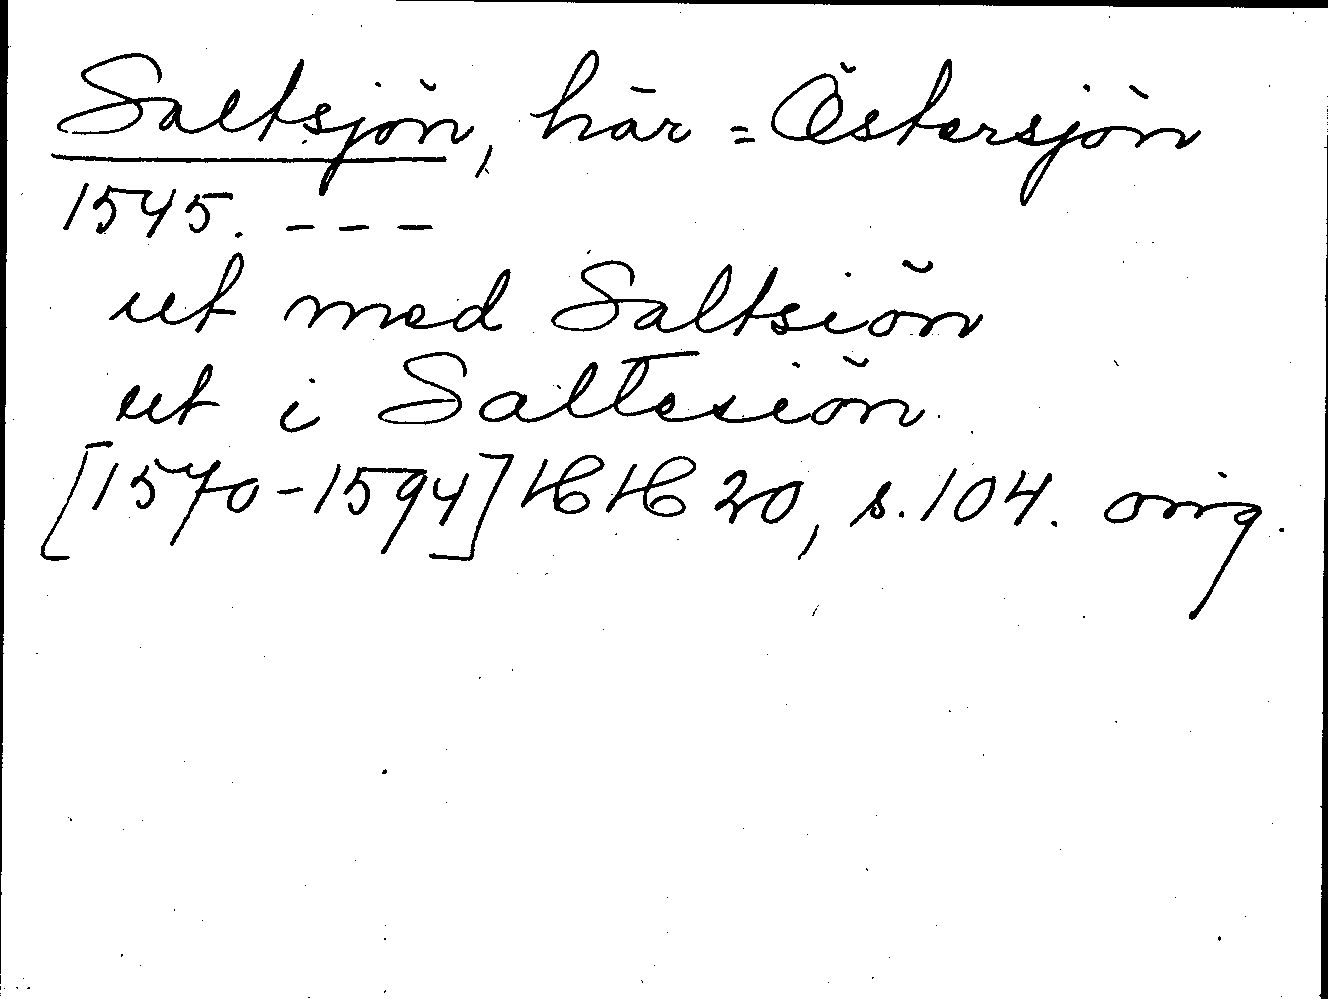 Saltsjön, här = Östersjön
1545. ---
ut med Saltsiön
ut i Saltesiön
[1570-1594] HH 20, s. 104. orig.